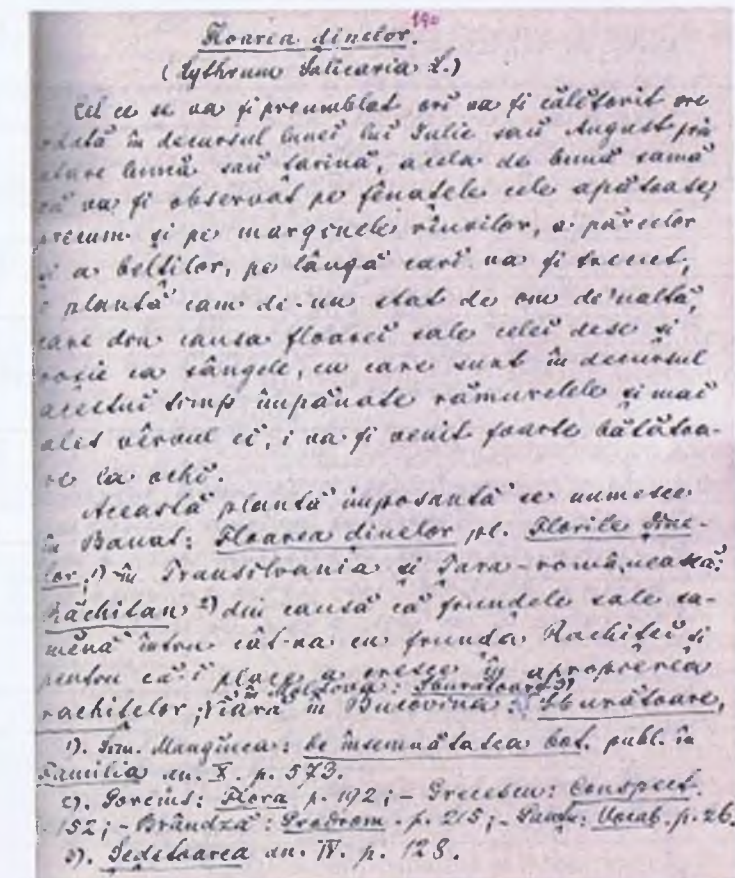 190
Floarea dinelor.
(Lythrum Salicaria L.)
Cel ce se va fi preumblat ori va fi călătorit ore
odată în decursul lunei lui Iulie sau August prin
atare luncă sau țarină, acela de bună samă
că va fi observat pe fênațele cele apătoase,
precum și pe marginele rîurilor, a păreelor
și a belților, pe lângă cari va fi trecut,
o plantă cam di-un stat de om de naltă,
care din causa floarei sale celei dese și
roșie ca sângele, cu care sunt în decursul
acestui timp împănate rămurelele și mai
ales vîrvul ei, i va fi venit foarte bătătoa-
re la ochi.
Această plantă imposantă se numesce
în Banat: Floarea dinelor pl. Florile dine-
lor,1) în Transilvania și Țara-românească:
Răchitan 2) din causă că frundele sale sa-
mênă întru cât-va cu frunda Rachitei și
pentru că-i place a cresce în apropierea
rachitelor; în Moldova: Sburătoare 3)
iară în Bucovina: Sburătoare,
1). Sim. Mangiuca: De însemnătatea bot. publ. în
Familia an. X. p. 573.
2). Porcius: Flora p. 192; - Grecescu: Conspect.
152; - Brândză: Prodrom. p. 215; - Panțu: Vocab. p. 26.
3). Șeḑĕtoarea an. IV. p. 128.